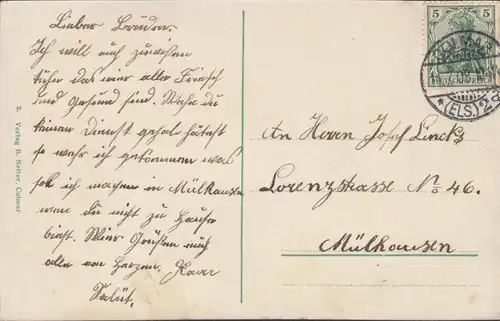 Lieber Bruder.
Ich will euch zuwissen
tuhn das wier alle Friesch
und Gesund sind. Wahn du
keinen Dienst gehat hätest
so wehr ich gekommen was
sol ich machen in Mülhausen
wen du nicht zu Hause
biest. Wier Grüßen euch
alle von Herzen.
Salüt.
B. Verlag R. Netter, Colmar
5 5
DEUTSCHES REICH
COLMAR
*(ELS.)2a
An Herrn Josef Linck
Lorenzstrasse No 46.
Mülhausen